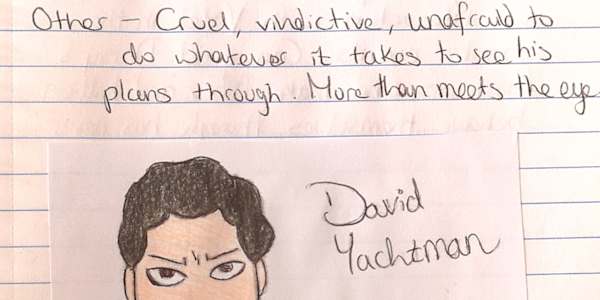 Other - Cruel, vindictive, unafraid to
do whatever it takes to see his
plans through. More than meets the eye.
David
Yachtman